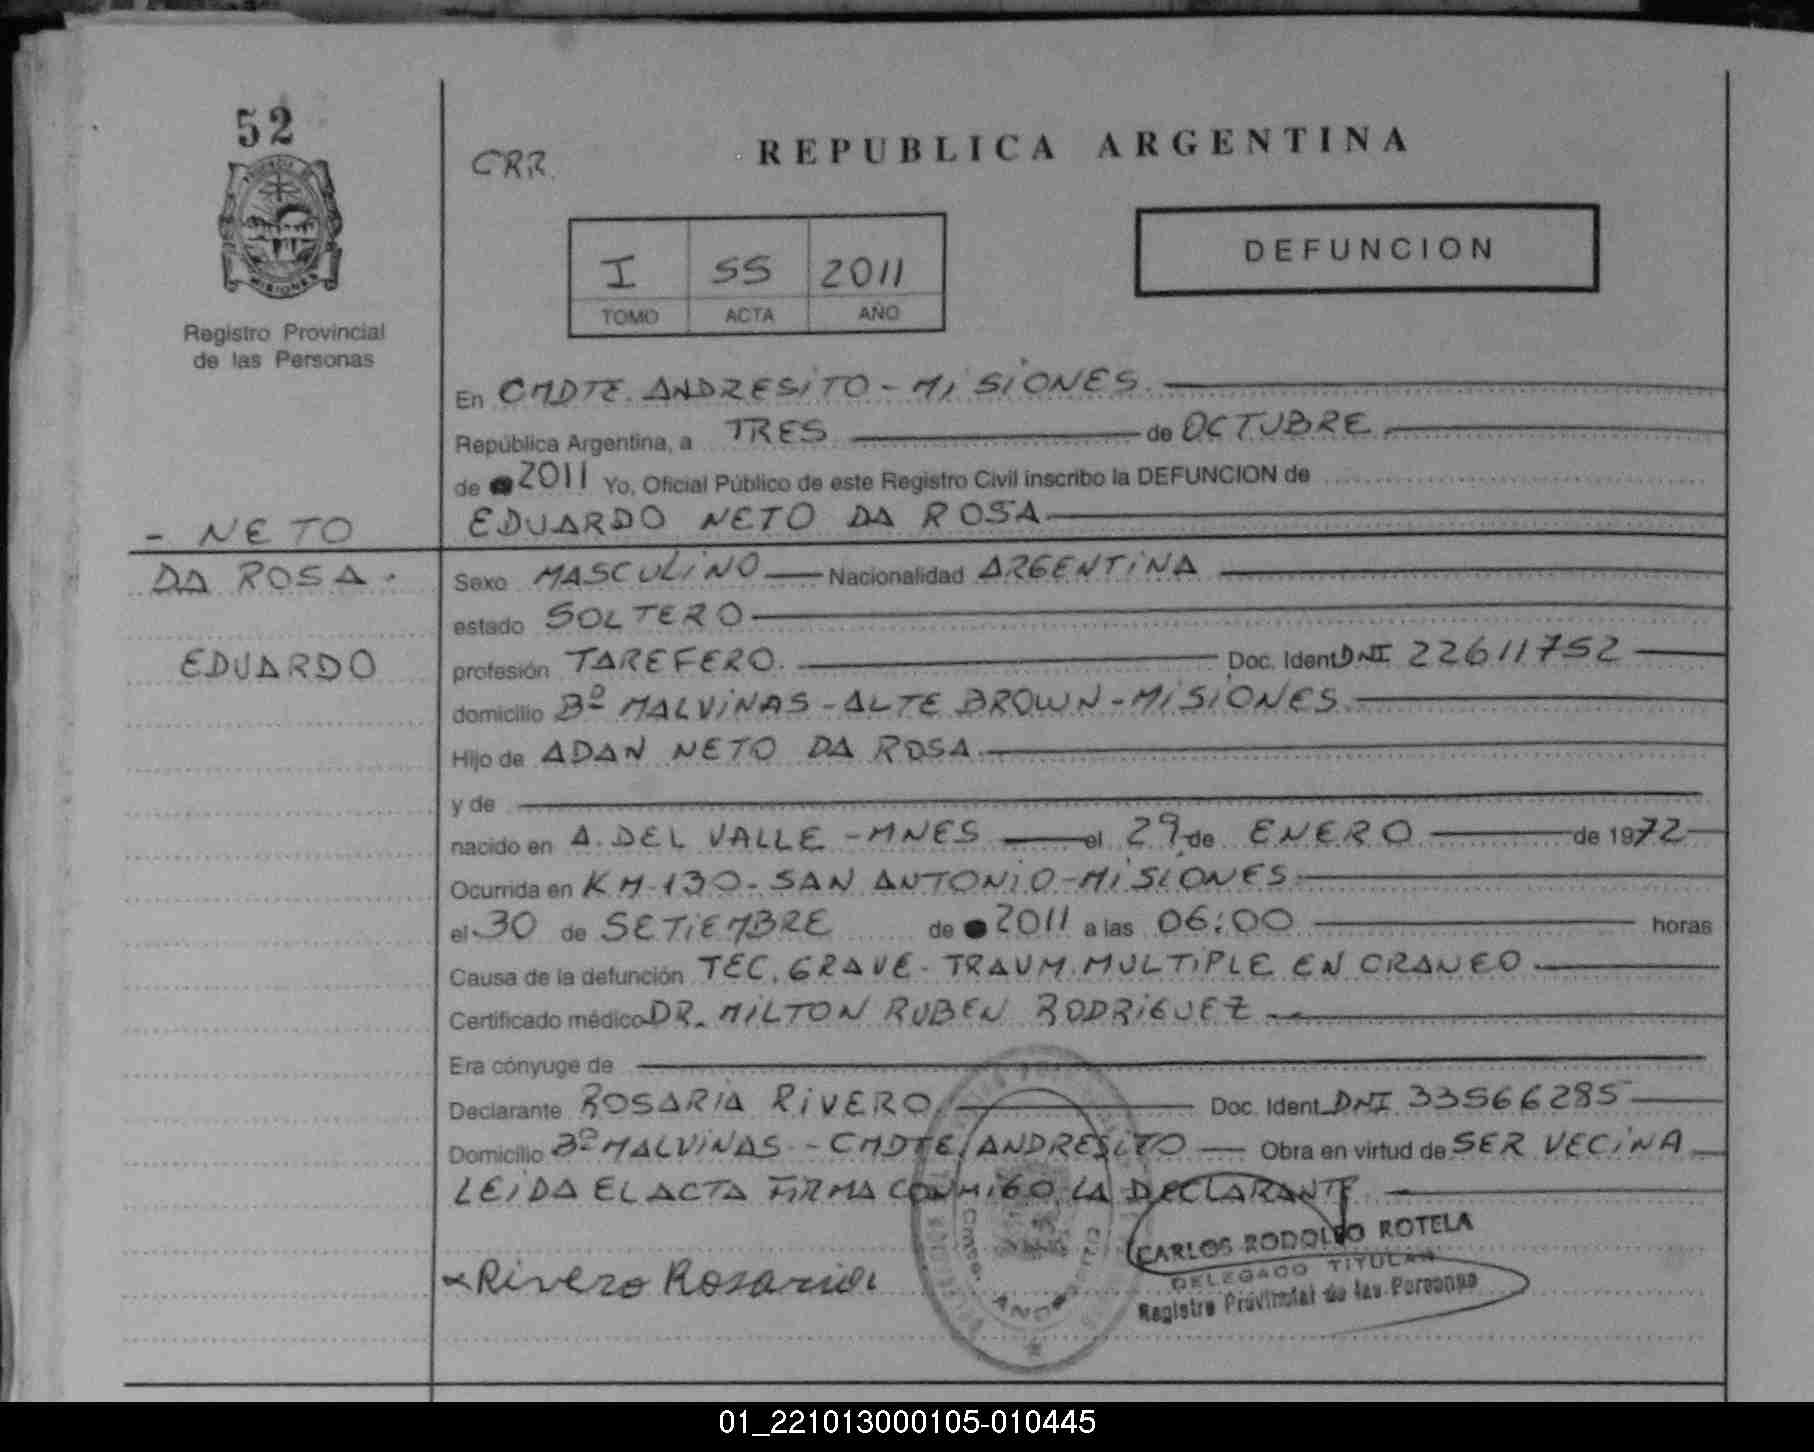 52
CRR.
REPUBLICA ARGENTINA
DEFUNCION
I SS 2011
TOMO ACTA AÑO
MISIONES
Registro Provincial
de las Personas
En CMDTE. ANDRESITO - MISIONES.
República Argentina, a TRES de OCTUBRE.
de 2011 Yo, Oficial Público de este Registro Civil inscribo la DEFUNCION de
EDUARDO NETO DA ROSA
- NETO
DA ROSA.
EDUARDO
Sexo MASCULINO Nacionalidad ARGENTINA
estado SOLTERO
profesión TAREFERO. Doc. Ident DNI 22611752
domicilio Bº MALVINAS - ALTE BROWN - MISIONES.
Hijo de ADAN NETO DA ROSA.
y de
nacido en A. DEL VALLE - MNES el 29 de ENERO de 1972
Ocurrida en KM-130- SAN ANTONIO - MISIONES.
el 30 de SETIEMBRE de 2011 a las 06:00 horas
Causa de la defunción TEC. GRAVE - TRAUM. MULTIPLE EN CRANEO.
Certificado médico DR. MILTON RUBEN RODRIGUEZ
Era cónyuge de
Declarante ROSARIA RIVERO Doc. Ident. DNI 33566285
Domicilio Bº MALVINAS - CMDTE ANDRESITO Obra en virtud de SER VECINA
LEIDA EL ACTA FIRMA CONMIGO LA DECLARANTE
CARLOS RODOLFO ROTELA
DELEGADO TITULAR
Registro Provincial de las Personas
Rivero Rosaria
01_221013000105-010445